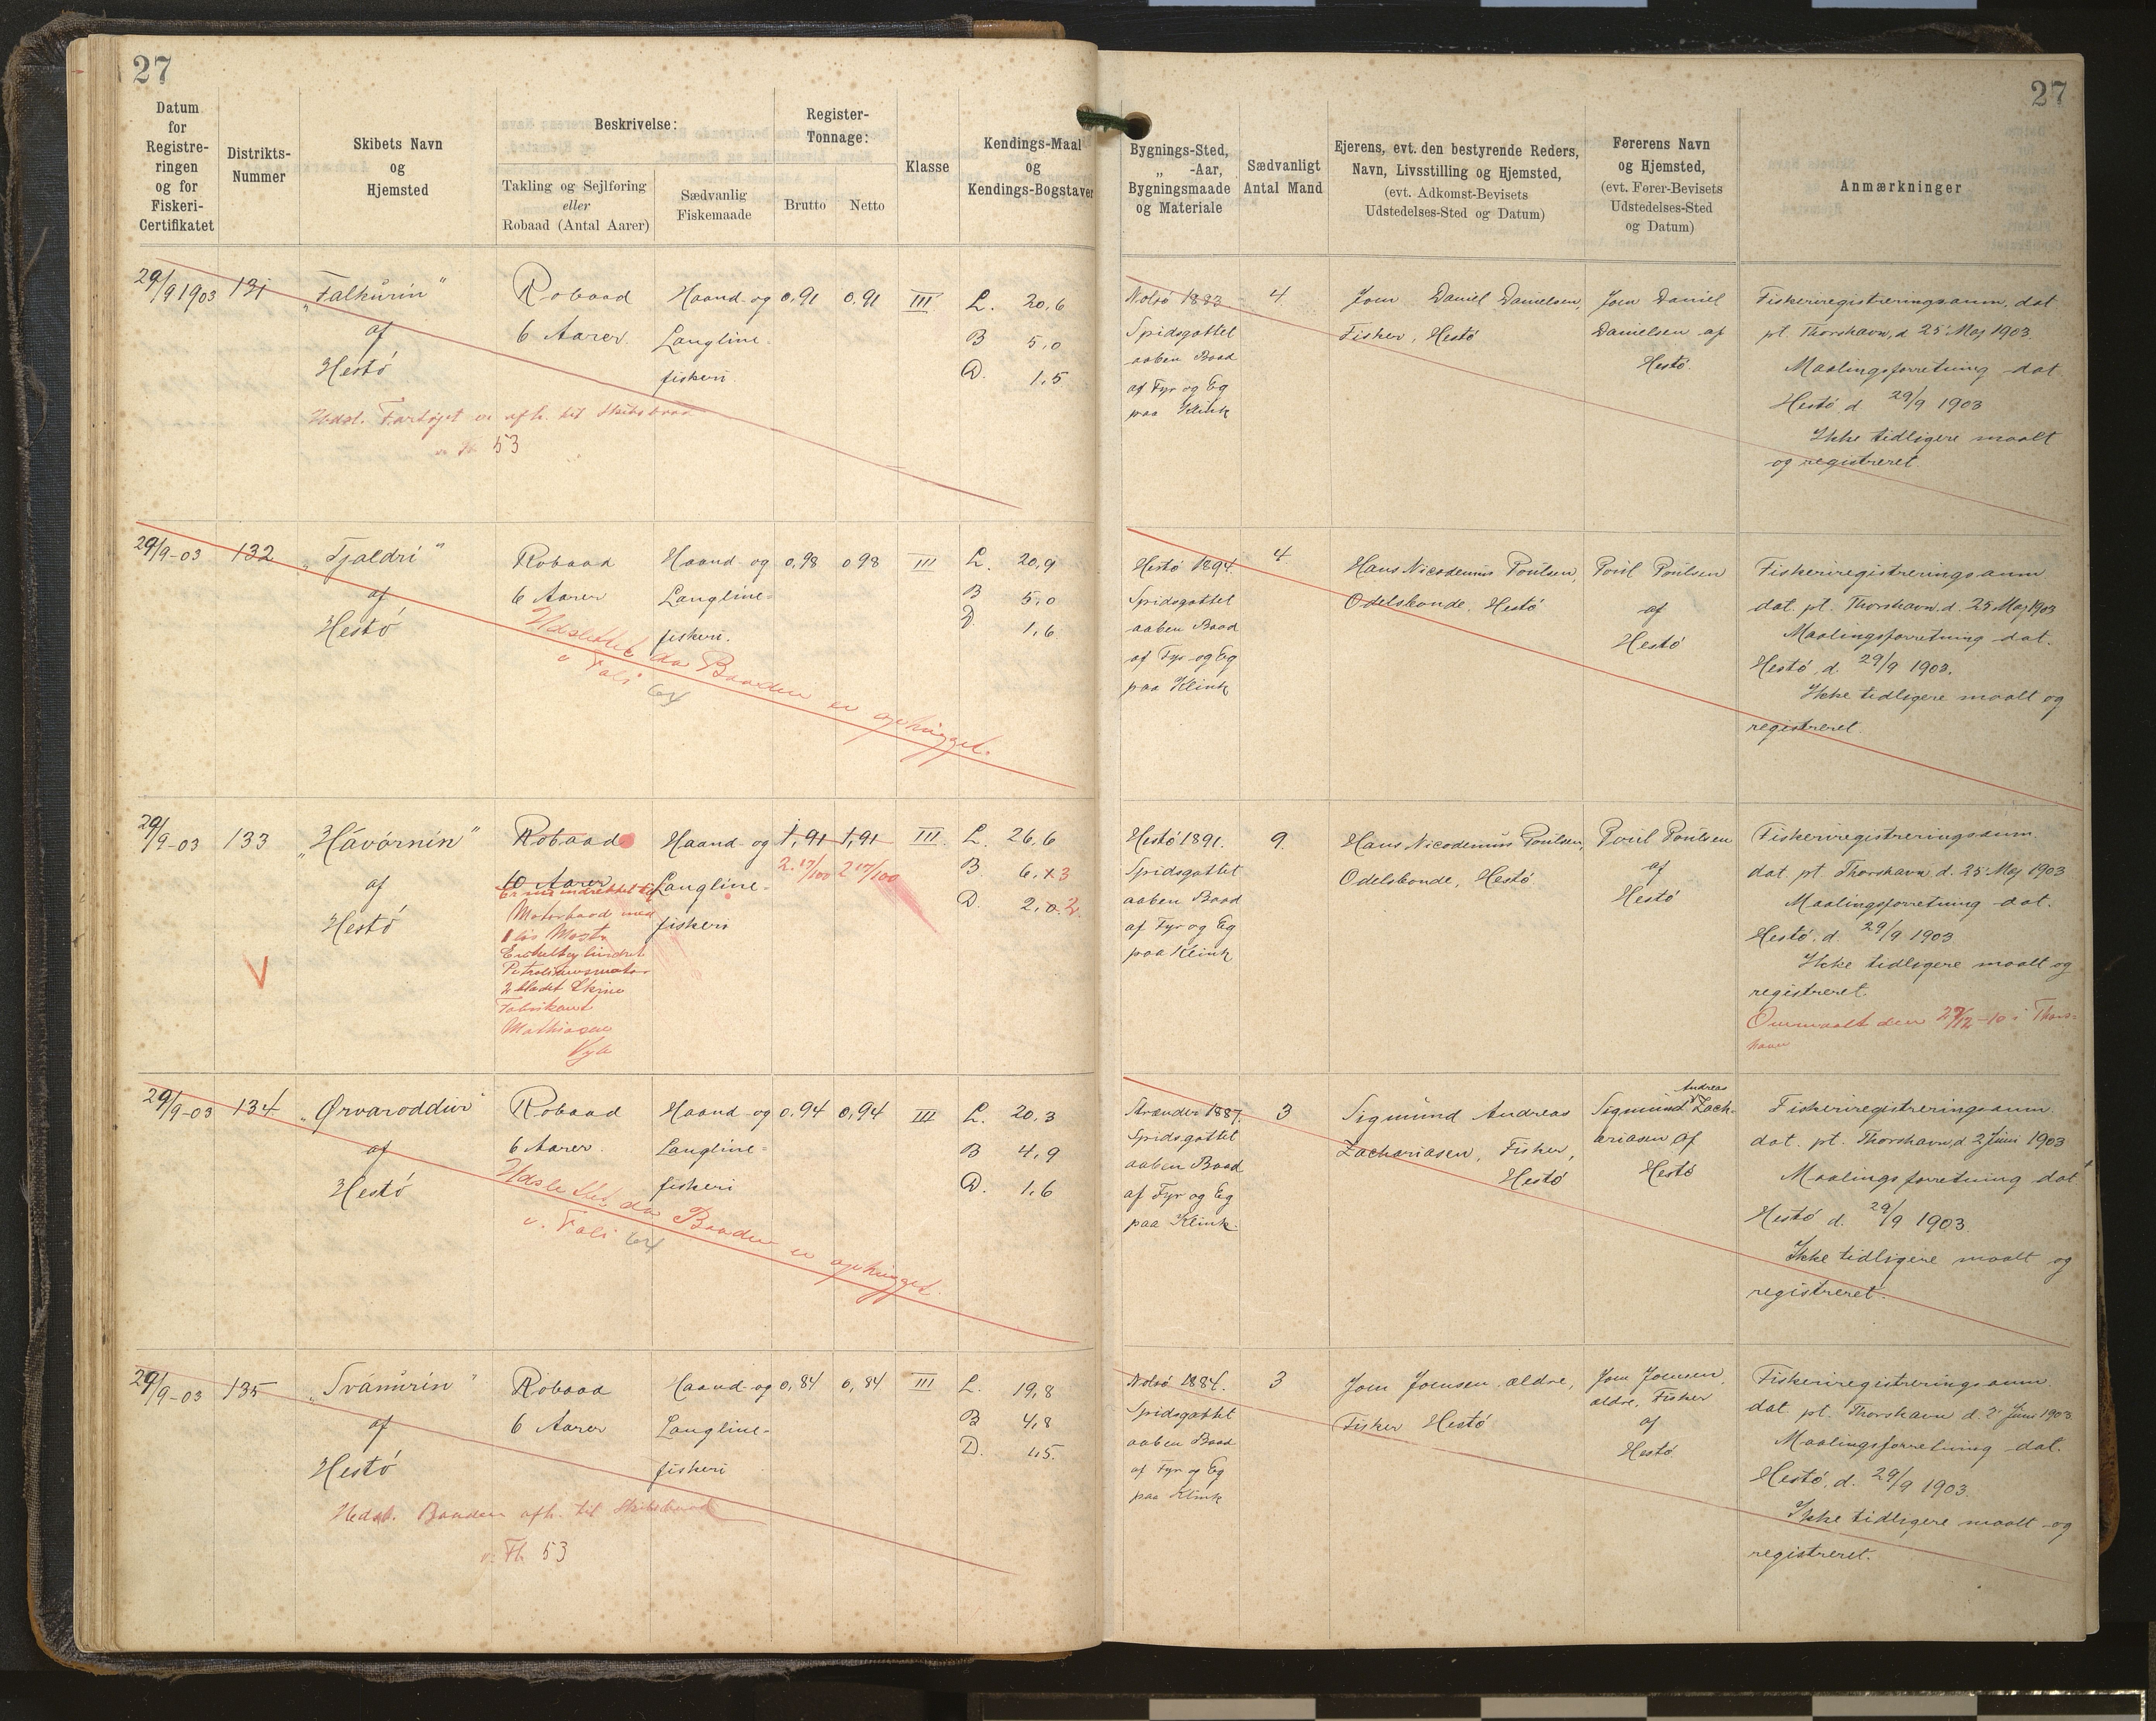 27
27
Datum
for
Registre-
ringen
og for
Fiskeri-
Certifikatet
Distrikts-
Nummer
Skibets Navn
og
Hjemsted
Beskrivelse:
Takling og Sejlføring
eller
Robaad (Antal Aarer)
Sædvanlig
Fiskemaade
Register-
Tonnage:
Brutto
Netto
Klasse
Kendings-Maal
og
Kendings-Bogstaver
Bygnings-Sted,
„ -Aar,
Bygningsmaade
og Materiale
Sædvanligt
Antal Mand
Ejerens, evt. den bestyrende Reders,
Navn, Livsstilling og Hjemsted,
(evt. Adkomst-Bevisets
Udstedelses-Sted og Datum)
Førerens Navn
og Hjemsted,
(evt. Fører-Bevisets
Udstedelses-Sted
og Datum)
Anmærkninger
29/9 1903
131
„Falkurin"
af
Hestó
Robaad
6 Aarer.
Haand- og
Langline-
fiskeri.
0,91
0,91
III
L. 20,6
B 5,0
D. 1,5
Udsl. Fartøjet er afh. til Skibsbaad
53
Nolsó 1883
Spidsgattet
aaben Baad
af Fyr og Eg
paa Klink
4.
Joen Daniel Danielsen,
Fisker, Hestó
Joen Daniel
Danielsen af
Hestó.
Fiskeriregistreringsanm. dat.
pt. Thorshavn, d. 25 Maj 1903.
Maalingsforretning dat.
Hestó, d. 29/9 1903
Ikke tidligere maalt
og registreret.
29/9-03
132
„Tjaldri"
af
Hestó
Robaad
6 Aarer
Haand- og
Langline-
fiskeri.
0,98
0,98
III
L. 20,9
B 5,0
D. 1,6
Udslettet da Baaden er ophugget.
v. Foli 64
Hestó 1894.
Spidsgattet
aaben Baad
af Fyr og Eg
paa Klink
4
Hans Nicodemus Poulsen,
Odelsbonde, Hestó
Poul Poulsen
af
Hestó
Fiskeriregistreringsanm
dat. pt. Thorshavn, d. 25 Maj 1903
Maalingsforretning dat.
Hestó, d. 29/9 1903.
Ikke tidligere maalt og
registreret.
29/9-03
133
„Hávórnin"
af
Hestó
V
Robaad
10 Aarer
Er nu indrettet til
Motorbaad med
1 løs Mast.
Enkeltcylindret
Petroleumsmotor
2 bladet Skrue
Fabrikant
Mathiasen
Haand- og
Langline-
fiskeri
1,91
1,91
2.17/100
2 17/100
III.
L. 26,6
B. 6,3
D. 2,2
Hestó 1891.
Spidsgattet
aaben Baad
af Fyr og Eg
paa Klink
9.
Hans Nicodemus Poulsen,
Odelsbonde, Hestó
Poul Poulsen
af
Hestó
Fiskeriregistreringsanm.
dat. pt. Thorshavn d. 25 Maj 1903
Maalingsforretning dat.
Hestó, d. 29/9 1903
Ikke tidligere maalt og
registreret.
Ommaalt den 29/12-10 i Thors-
havn
29/9-03
134
„Ørvaroddur"
af
Hestó
Robaad
6 Aarer.
Haand- og
Langline-
fiskeri
0.94
0,94
III
L. 20,3
B 4,9
D. 1,6
Udslettet, da Baaden er ophugget.
v. Foli 64
Strænder 1887.
Spidsgattet
aaben Baad
af Fyr og Eg
paa Klink.
3
Sigmund Andreas
Zachariasen, Fisker,
Hestó
Andreas
Sigmund Zach-
ariasen af
Hestó
Fiskeriregistreringsanm
dat. pt. Thorshavn, d. 2 Juni 1903
Maalingsforretning dat
Hestó d. 29/9 1903.
Ikke tidligere maalt og
registreret.
29/9-03
135
„Svánurin"
af
Hestó
Robaad
6 Aarer
Haand- og
Langline-
fiskeri
0,84
0,84
III
L. 19,8
B 4,8
D. 1,5.
Udsl. Baaden afh. til Skibsbaad
v. Th 53
Nolsó 1884.
Spidsgattet
aaben Baad
af Fyr og Eg
paa Klink
3
Joen Joensen, ældre,
Fisker Hestó
Joen Joensen,
ældre, Fisker
af
Hestó.
Fiskeriregistreringsanm.
dat. pt. Thorshavn d. 2' Juni 1903.
Maalingsforretning dat.
Hestó, d. 29/9 1903.
Ikke tidligere maalt og
registreret.